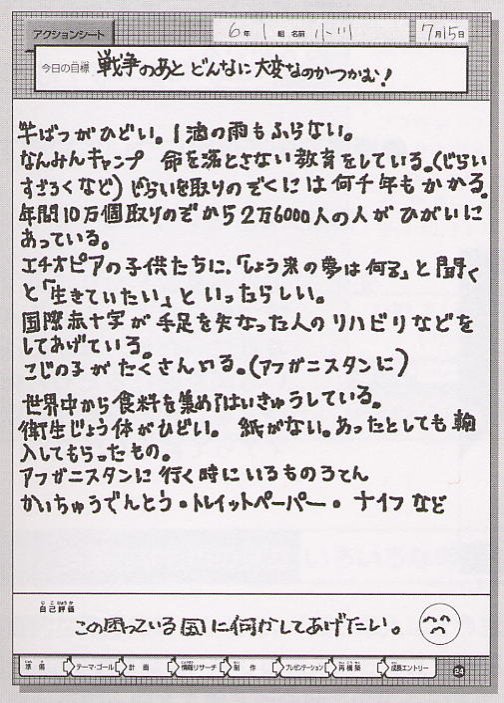 アクションシート
6年 1組 名前 小川
7月15日
今日の目標 戦争のあと どんなに大変なのかつかむ!
干ばつがひどい。1滴の雨もふらない。
なんみんキャンプ 命を落とさない教育をしている。(じらい
すごろくなど)じらいを取りのぞくには何千年もかかる。
年間10万個取りのぞから2万6000人の人がひがいに
あっている。
エチオピアの子供たちに、「しょう来の夢は何る」と聞く
と「生きていたい」といったらしい。
国際赤十字が手足を失なった人のリハビリなどを
してあげている。
こじの子がたくさんいる。(アフガニスタンに)
世界中から食料を集めてはいきゅうしている。
衛生じょう体がひどい。 紙がない。あったとしても輸
入してもらったもの。
アフガニスタンに行く時にいるもの3てん
かいちゅうでんとう・トレイットペーパー・ナイフなど
自己評価
この困っている国に何かしてあげたい。
準備 テーマ・ゴール 計画 情報リサーチ 制作 プレゼンテーション 再構築 成長エントリー